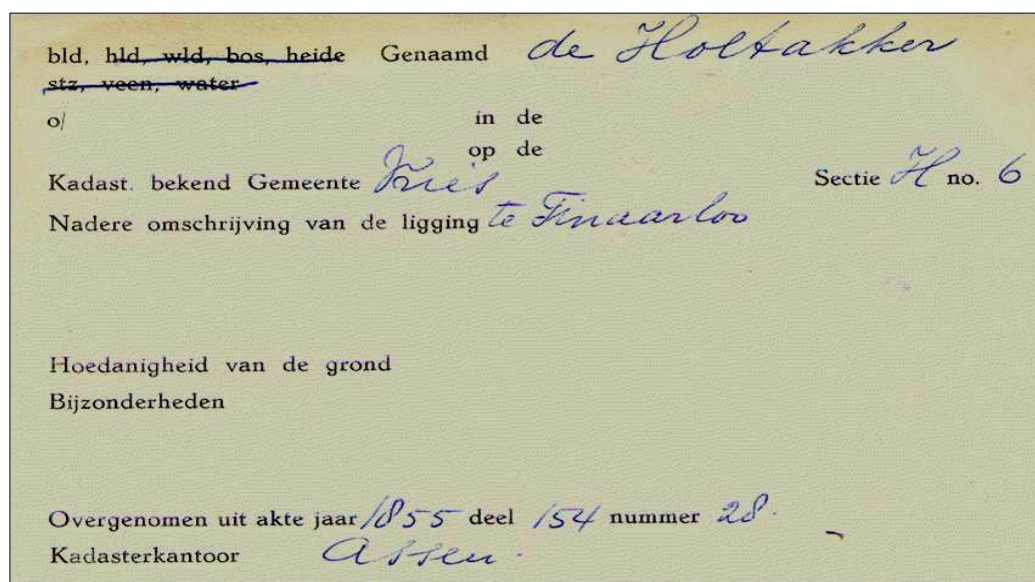 bld, hld, wld, bos, heide Genaamd de Holtakker
stz, veen, water
o/ in de
op de
Kadast. bekend Gemeente Vries Sectie H no. 6
Nadere omschrijving van de ligging te Tinaarloo
Hoedanigheid van de grond
Bijzonderheden
Overgenomen uit akte jaar 1855 deel 154 nummer 28.
Kadasterkantoor Assen.